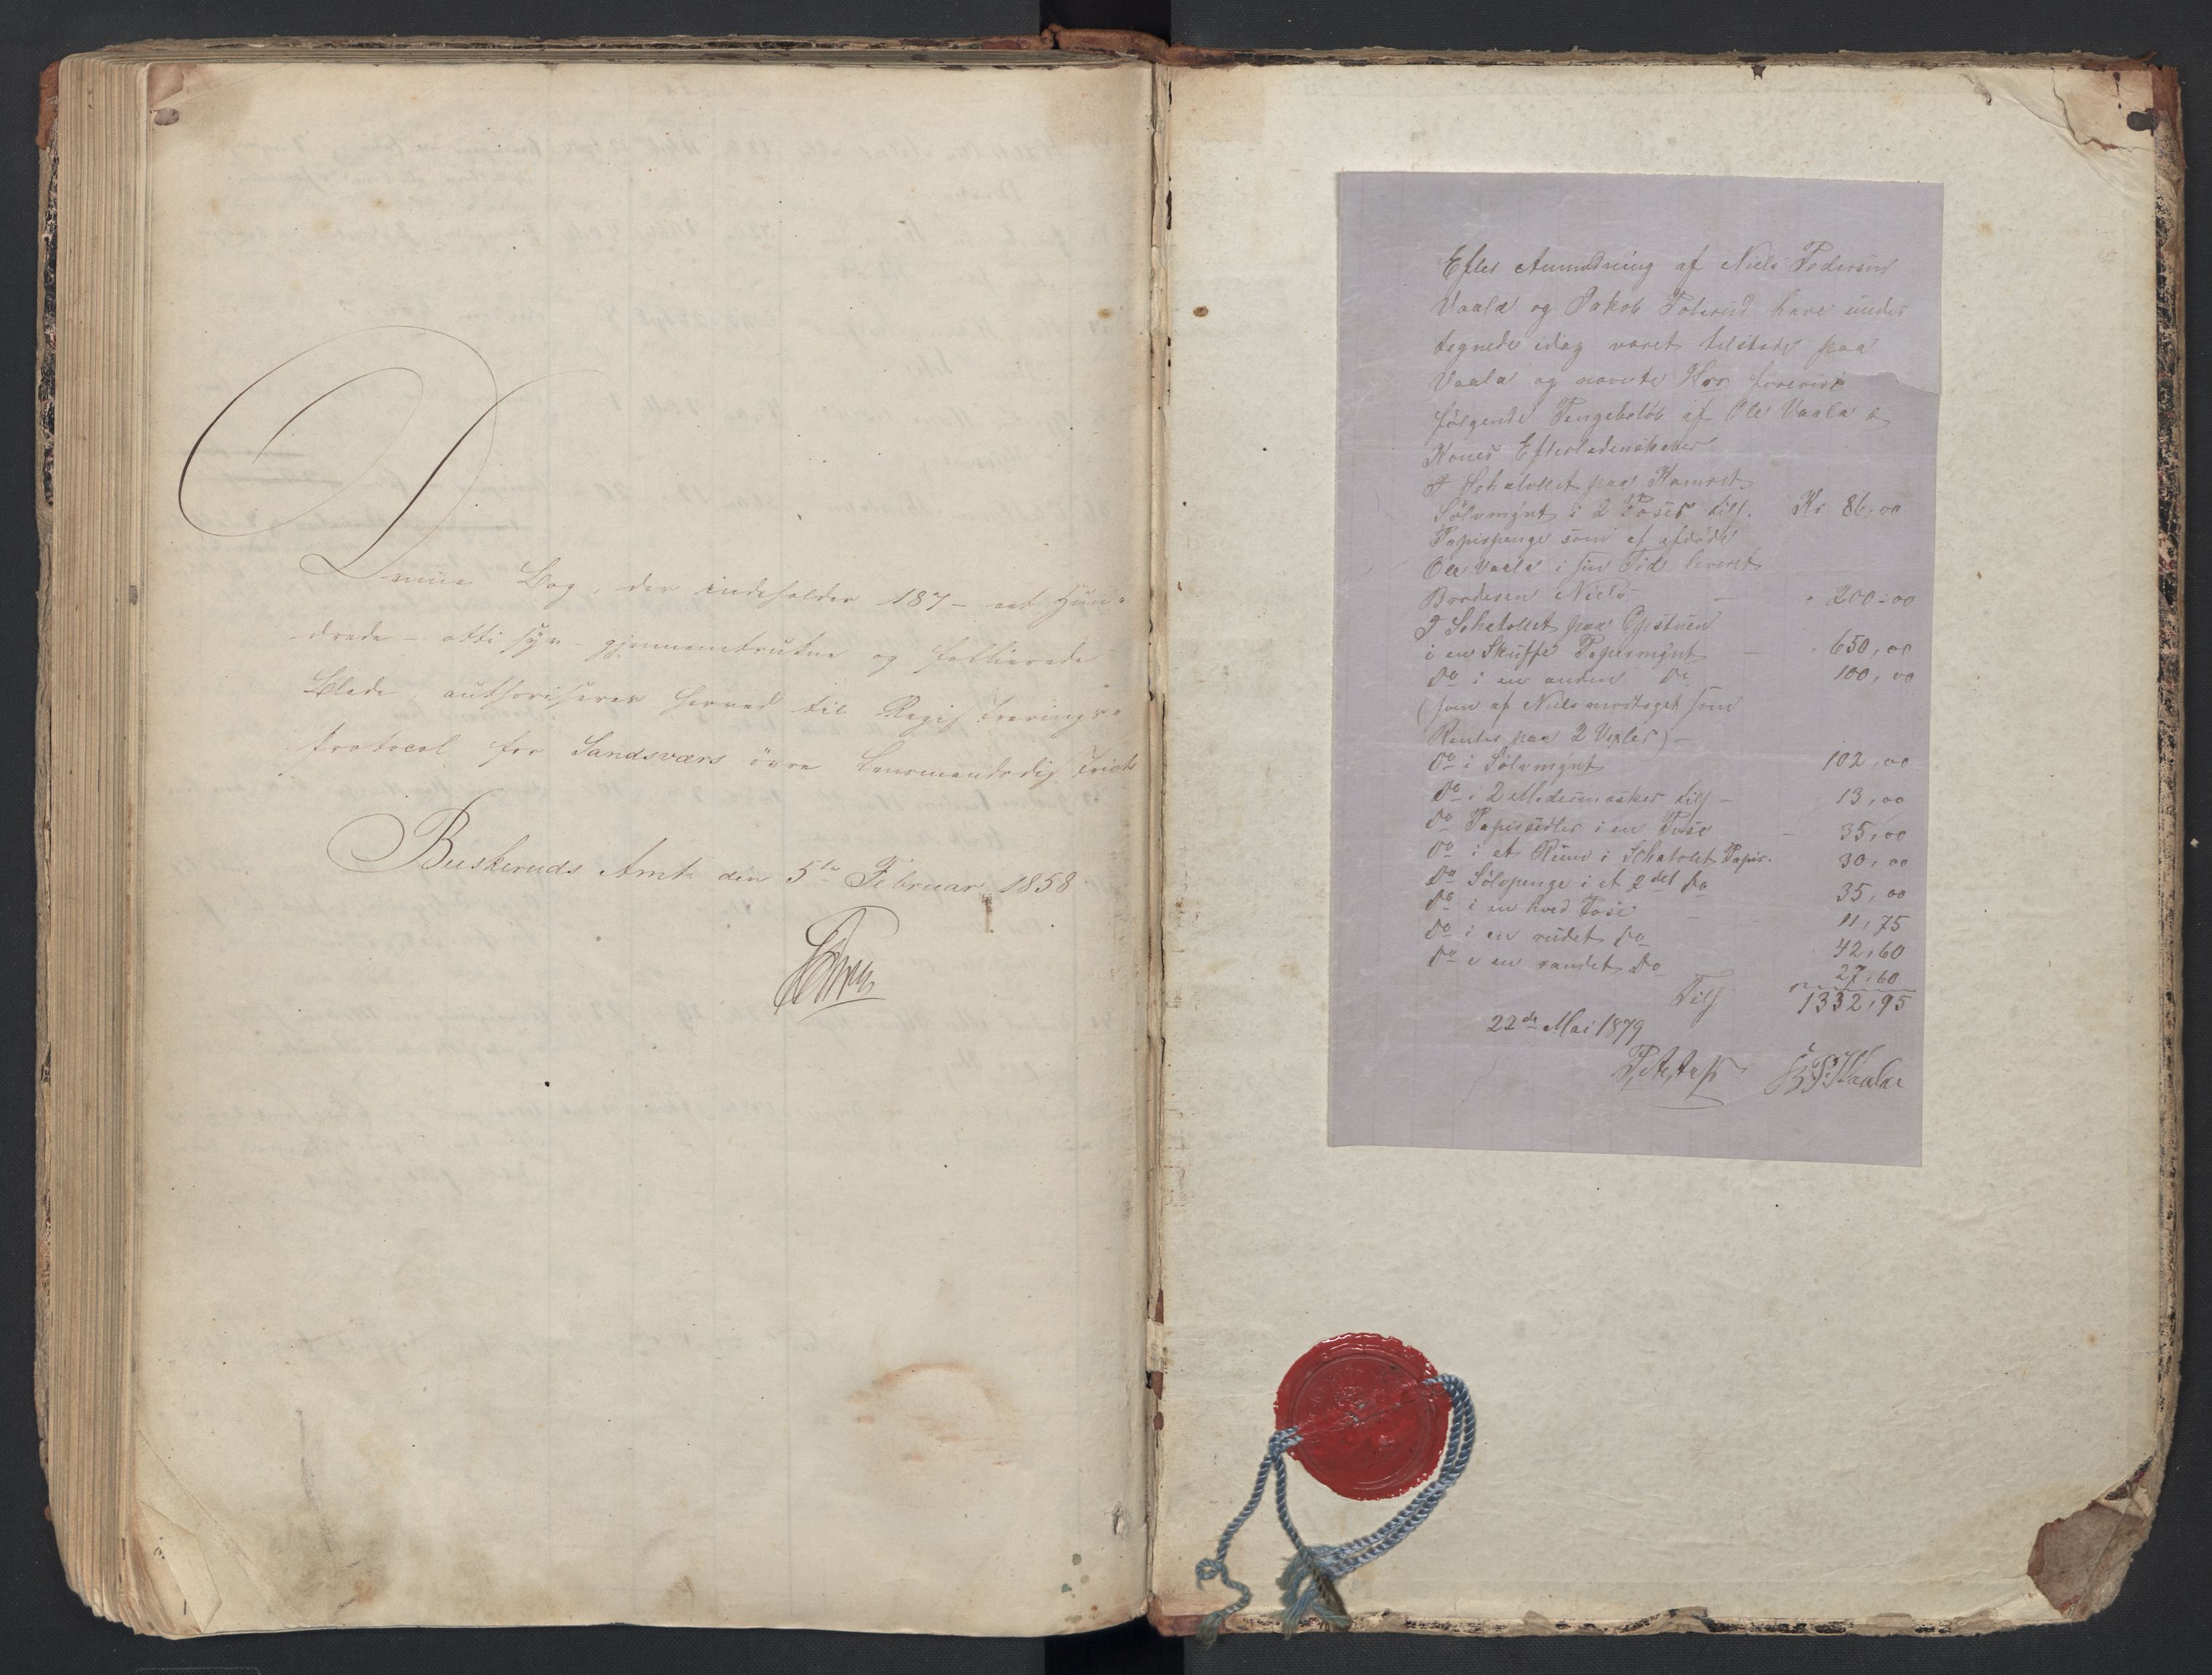 Denne Bog, der indeholder 187 - eet Hun-
drede - otti syv - gjennemtrukne og follierede
Blade, authoriseres herved til Registrerings-
protocol for Sandsværs övre Lensmandsdistrict
Buskeruds Amt den 5te Februar 1858
Efter Anmodning af Niels Pedersen
Vaala og Jakob have under
tegnede idag været tilstede paa
Vaala og nævnte forevist
følgende Pengebeløb af Ole Vaala s
Kones Efterladenskaber
I Schatollet paa Kamret
Sølvmynt i 2 Poser tils. Kr 86,00
Papirpenge som af afdøde
Ole Vaala i sin Tid leveret
Brodersen Niels - " 200-00
I Schatollet paa Opstuen
i en Skuffe Papirmynt - " 650,00
Do i en anden Do 100,00
(som af Niels modtaget som
Renter paa 2 Vexler) -
Do i Sølvmynt 102,00
Do i 2 tils - 13,00
Do Papirsedler i en Pose - 35,00
Do i et Rum i Schatolet Papir. 30,00
Do Sølvpenge i et 2det Do 35,00
Do i en hvid Pose 11,75
Do i en rudet Do 42,60
Do i en randet Do 27,60
Tils 1332,95
22de Mai 1879
Vaala